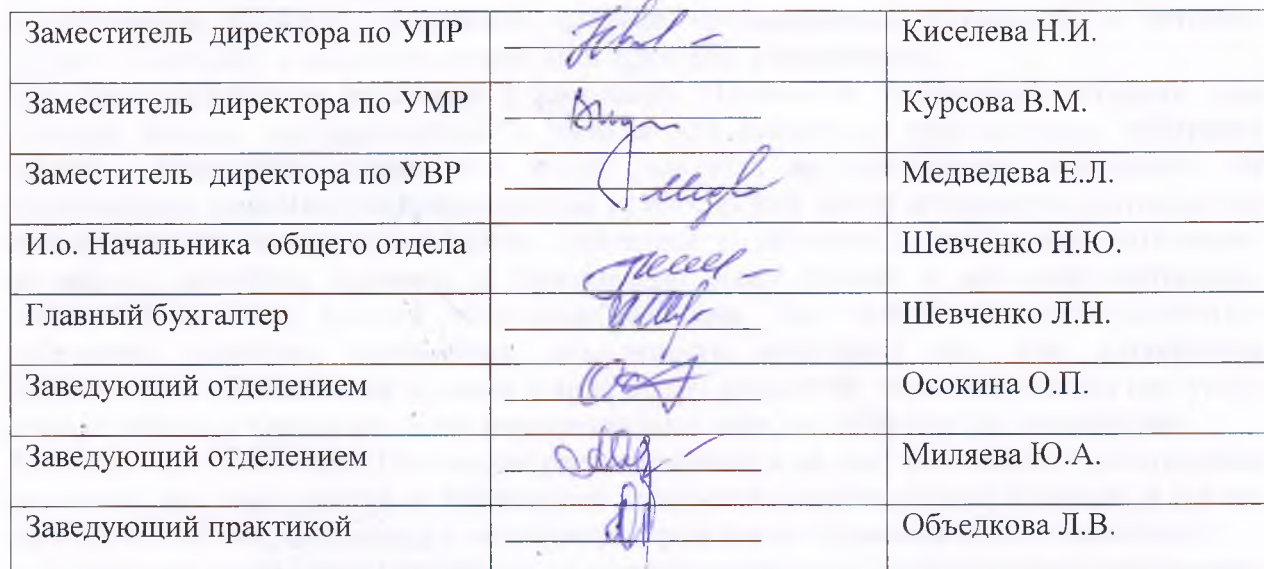 Заместитель директора по УПР Киселева Н.И.
Заместитель директора по УМР Курсова В.М.
Заместитель директора по УВР Медведева Е.Л.
И.о. Начальника общего отдела Шевченко Н.Ю.
Главный бухгалтер Шевченко Л.Н.
Заведующий отделением Осокина О.П.
Заведующий отделением Миляева Ю.А.
Заведующий практикой Объедкова Л.В.